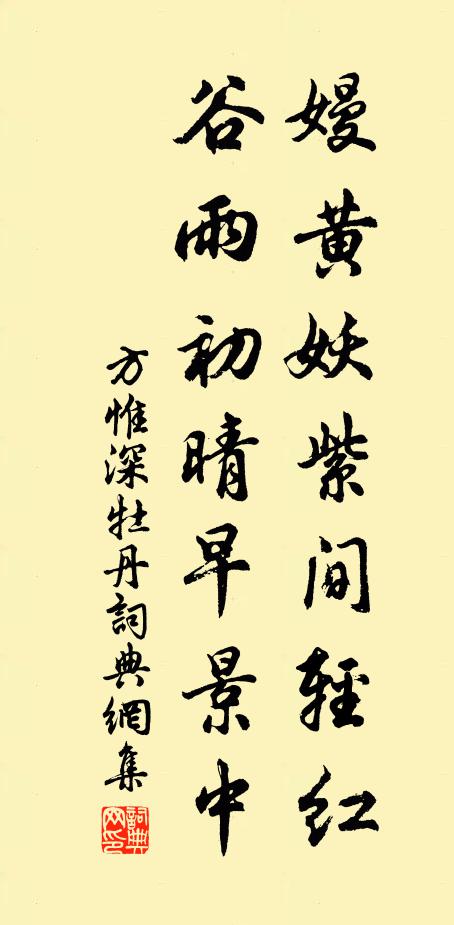 嫚黄妖紫間輕红
谷雨初晴早景中
方惟深牡丹詞典網集
詞典网印